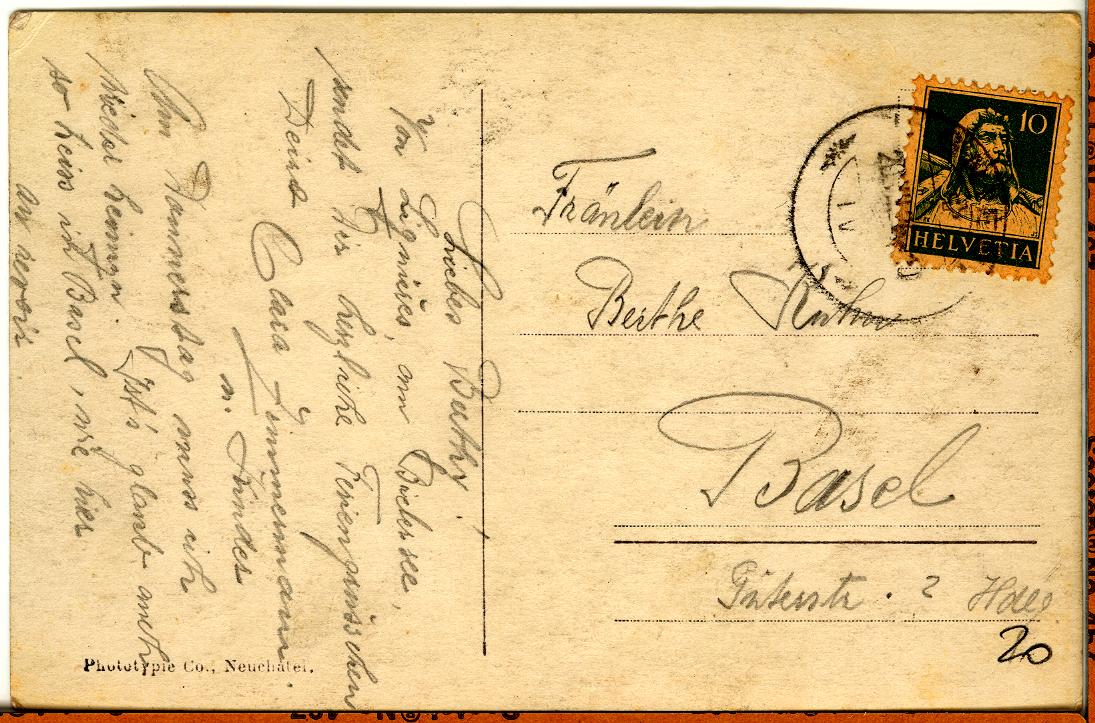 Liebes Berthy!
Von Lignières, am Bielersee,
sendet Dir herzliche Feriengrüsschen
Deine Clara Zimmermann.
n. Kinder
Am Donnerstag muss ich
wieder heimgn. Ist's glaub auch
so heiss in Basel, wie hier
au revoir
Phototypie Co., Neuchâtel.
10
HELVETIA
Fräulein
Berthe Kuhn
Basel
Güterstr. ?
20